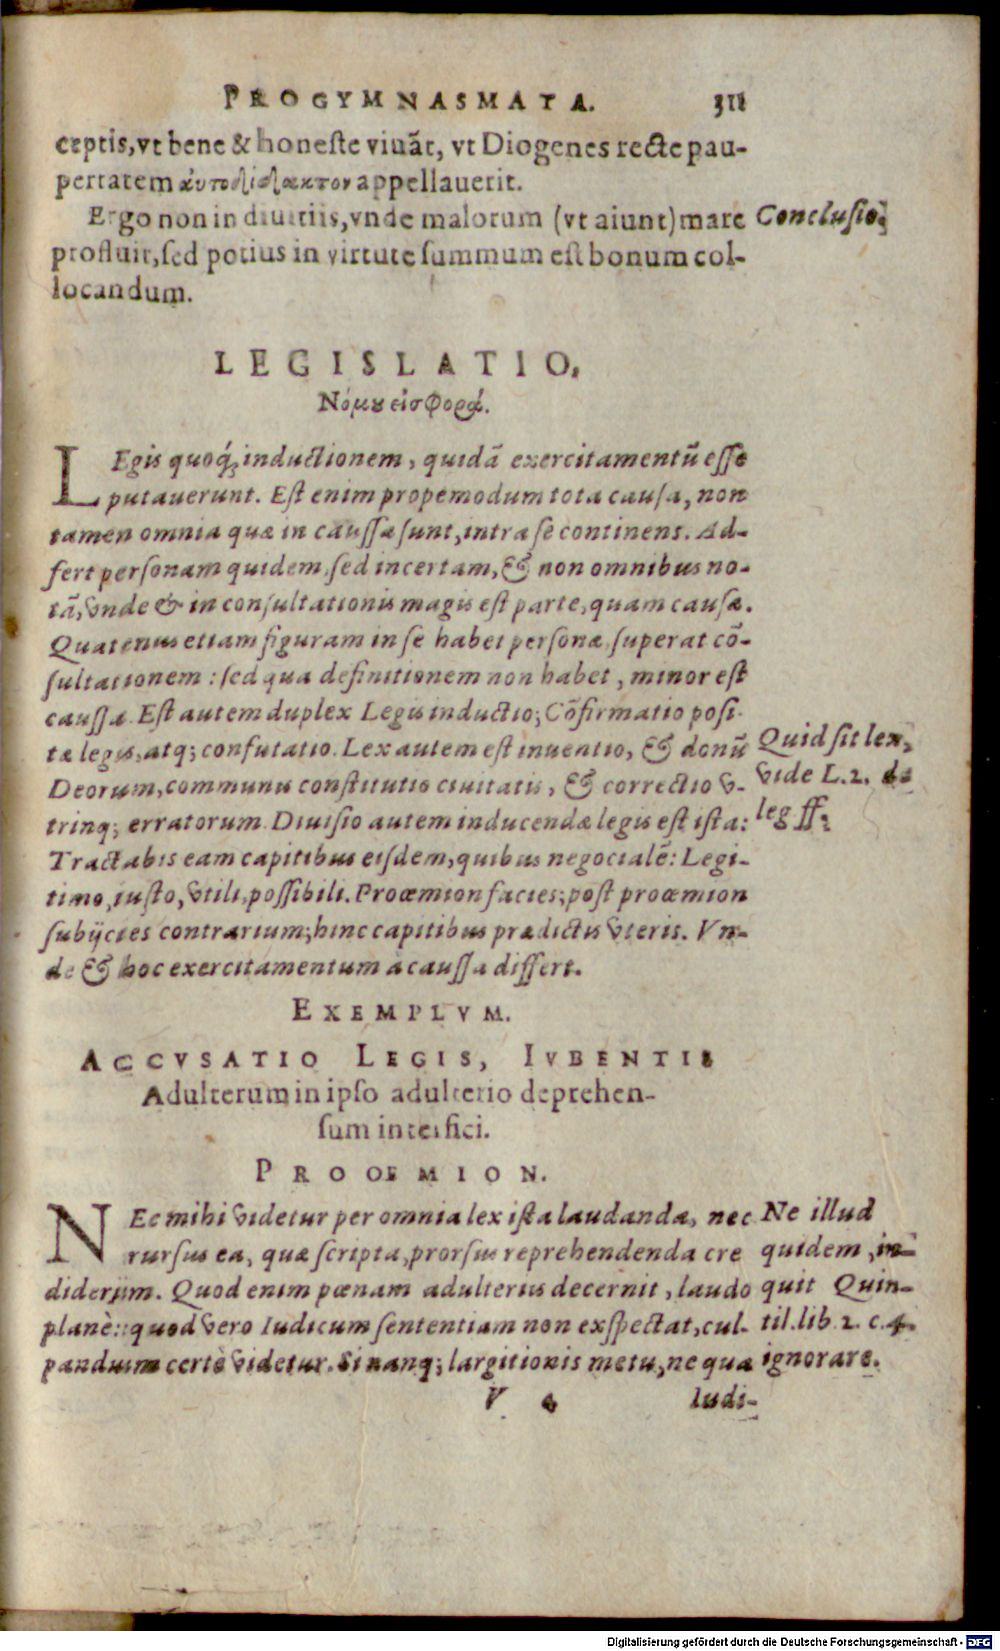 PROGYMNASMATA. 311
ceptis, vt bene & honeste viuāt, vt Diogenes recte pau-
pertatem αὐτοδίδακτον appellauerit.
Ergo non in diuitiis, vnde malorum (vt aiunt) mare
Conclusio.
profluit, sed potius in virtute summum est bonum col-
locandum.
LEGISLATIO,
Νόμου εἰσφορά.
LEgis quoq; inductionem, quidā exercitamentū esse
putauerunt. Est enim propemodum tota causa, non
tamen omnia quæ in caussa sunt, intra se continens. Ad-
fert personam quidem, sed incertam, & non omnibus no-
tā, vnde & in consultationis magis est parte, quam causæ.
Quatenus etiam figuram in se habet personæ, superat cō-
sultationem: sed qua definitionem non habet, minor est
caussa. Est autem duplex Legis inductio; Cōfirmatio posi-
tæ legis, atq; confutatio. Lex autem est inuentio, & donū
Deorum, communis constitutio ciuitatis, & correctio v-
trinq; erratorum. Diuisio autem inducendæ legis est ista:
Tractabis eam capitibus eisdem, quibus negocialē: Legi-
timo, iusto, vtili, possibili. Proœmion facies; post proœmion
subijcies contrarium; hinc capitibus prædictis vteris. Vn-
de & hoc exercitamentum à caussa differt.
Quid sit lex,
vide L. 2. de
leg. ff.
EXEMPLVM.
ACCVSATIO LEGIS, IVBENTIS
Adulterum in ipso adulterio deprehen-
sum interfici.
PROOEMION.
NEc mihi videtur per omnia lex ista laudanda, nec
rursus ea, quæ scripta, prorsus reprehendenda cre
diderim. Quod enim pœnam adulteris decernit, laudo
planè: quod vero Iudicum sententiam non exspectat, cul-
panduim certè videtur. Si nanq; largitionis metu, ne qua
Ne illud
quidem, in-
quit Quin-
til. lib. 2. c. 4.
ignorare.
V 4 Iudi-
Digitalisierung gefördert durch die Deutsche Forschungsgemeinschaft - DFG